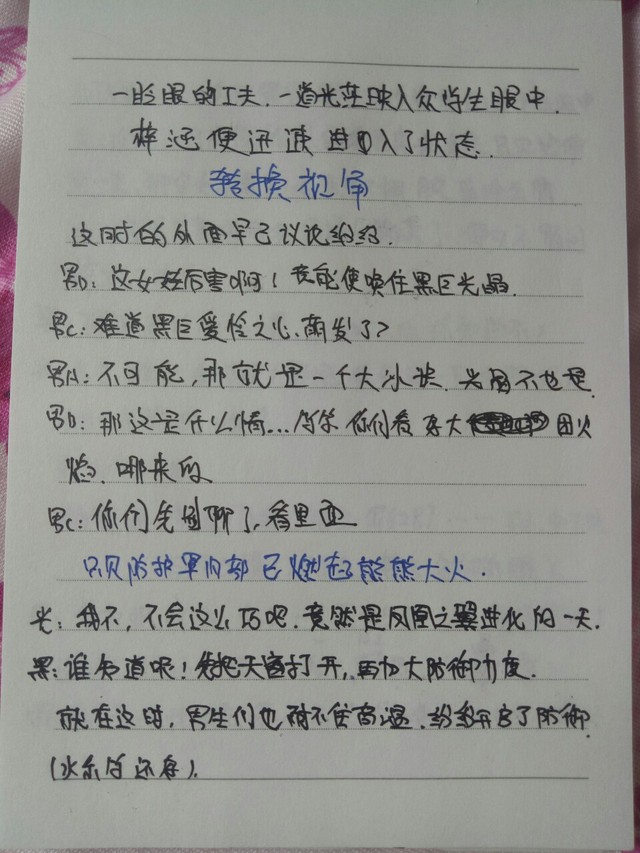 一眨眼的工夫.一道光茫映入众学生眼中.
梓涵便迅速进入了状态.
转换视角
这时的外面早已议论纷纷.
男D:这女娃厉害啊!竟能使唤住黑巨光晶.
男C:难道黑巨爱怜之心,萌发了?
男A:不可能,那就是一个大冰块.光晶不也是.
男D:那这是什么情...等等你们看好大团火
焰.哪来的
男C:你们先别聊了,看里面
只见防护罩内部已燃起熊熊大火.
光:我不,不会这么巧吧.竟然是凤凰之翼进化的一天.
黑:谁知道呢!先把天窗打开,再加大防御力度.
就在这时,男生们也耐不住高温.纷纷开启了防御
(水系等还存).